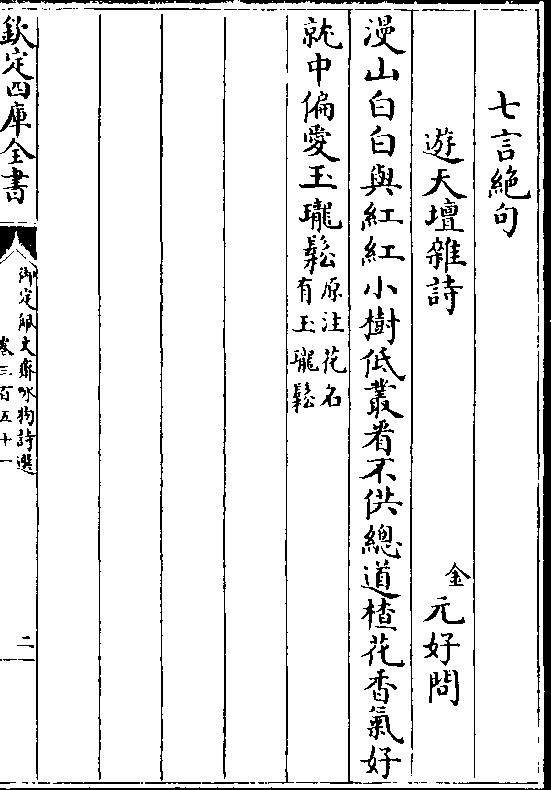 七言絶句
遊天壇雜詩 金 元好問
漫山白白與紅紅小樹低叢看不供總道楂花香氣好
就中偏愛玉瓏鬆原注花名有玉瓏鬆
欽定四庫全書
御定佩文齋咏物詩選
卷三百五十一
二